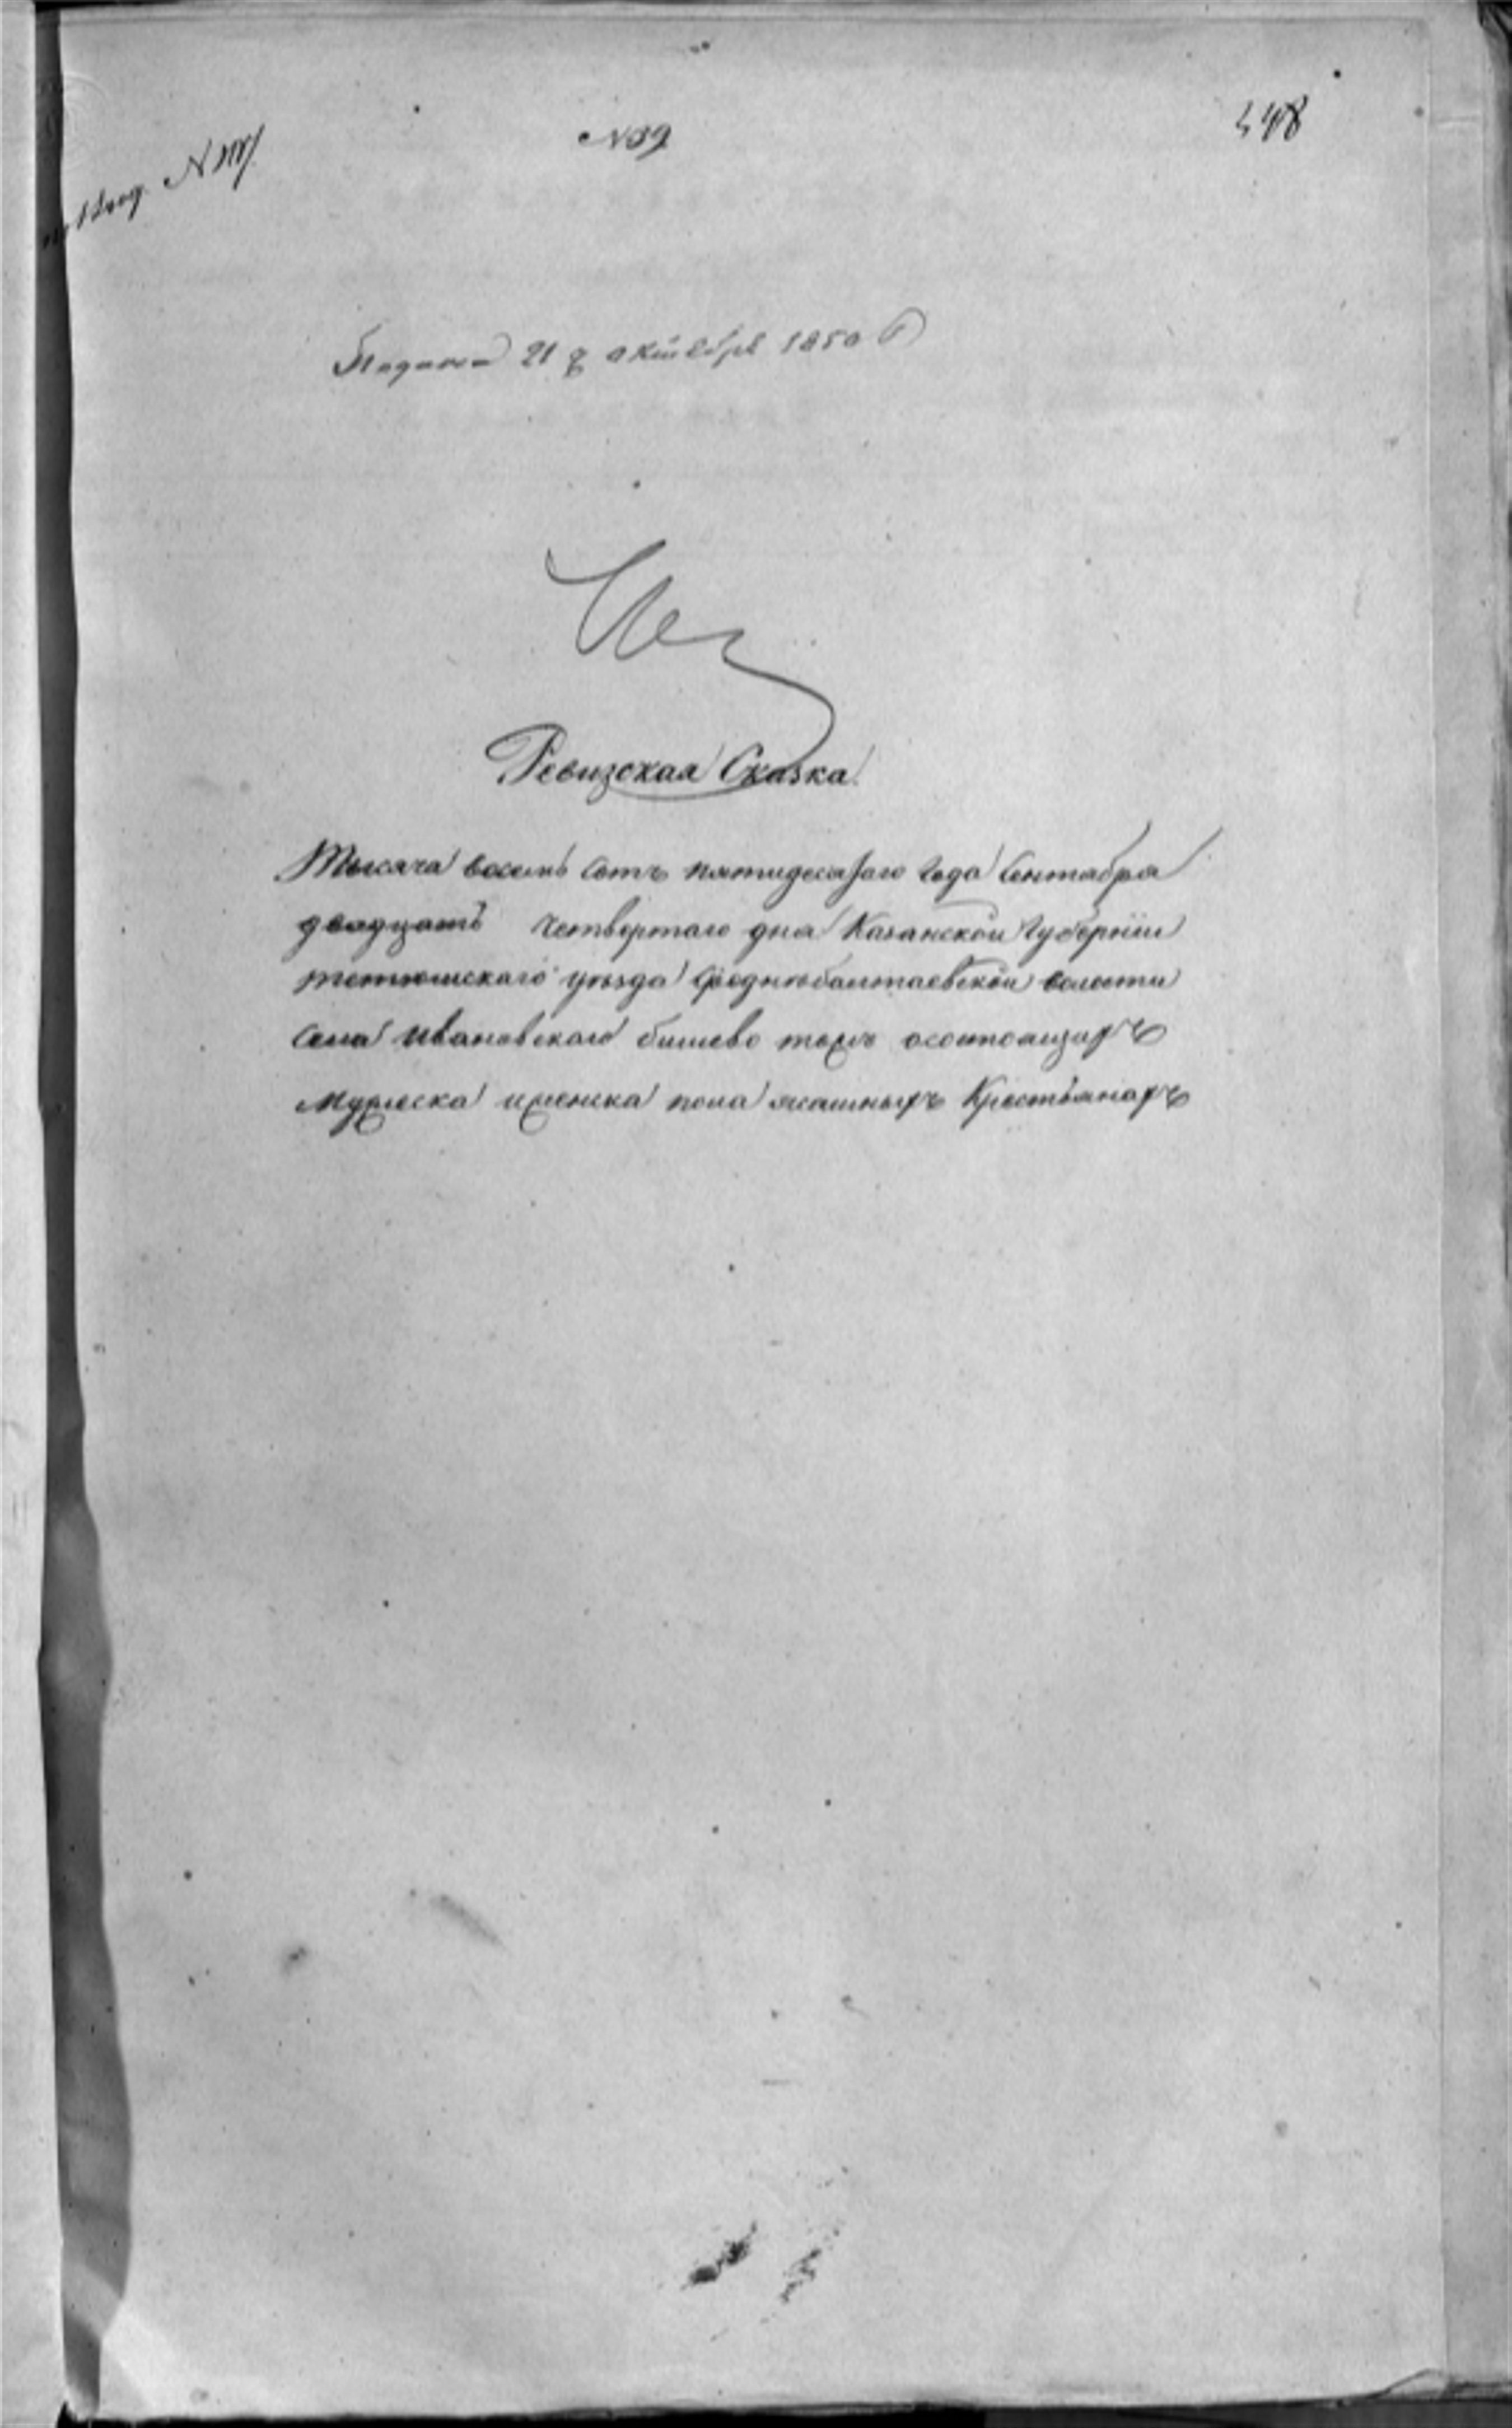 № 39
448
Подана 21 г октября 1850 г
Ревизская Сказка
Тысяча восемь сотъ пятидесятаго года Сентября
двадцать четвертаго дня Казанской Губернiи
тетюшскаго уѣзда Среднебалтаевской волости
села Ивановскаго бишево тожъ
мужеска и женска пола ясашныхъ Крестьянахъ